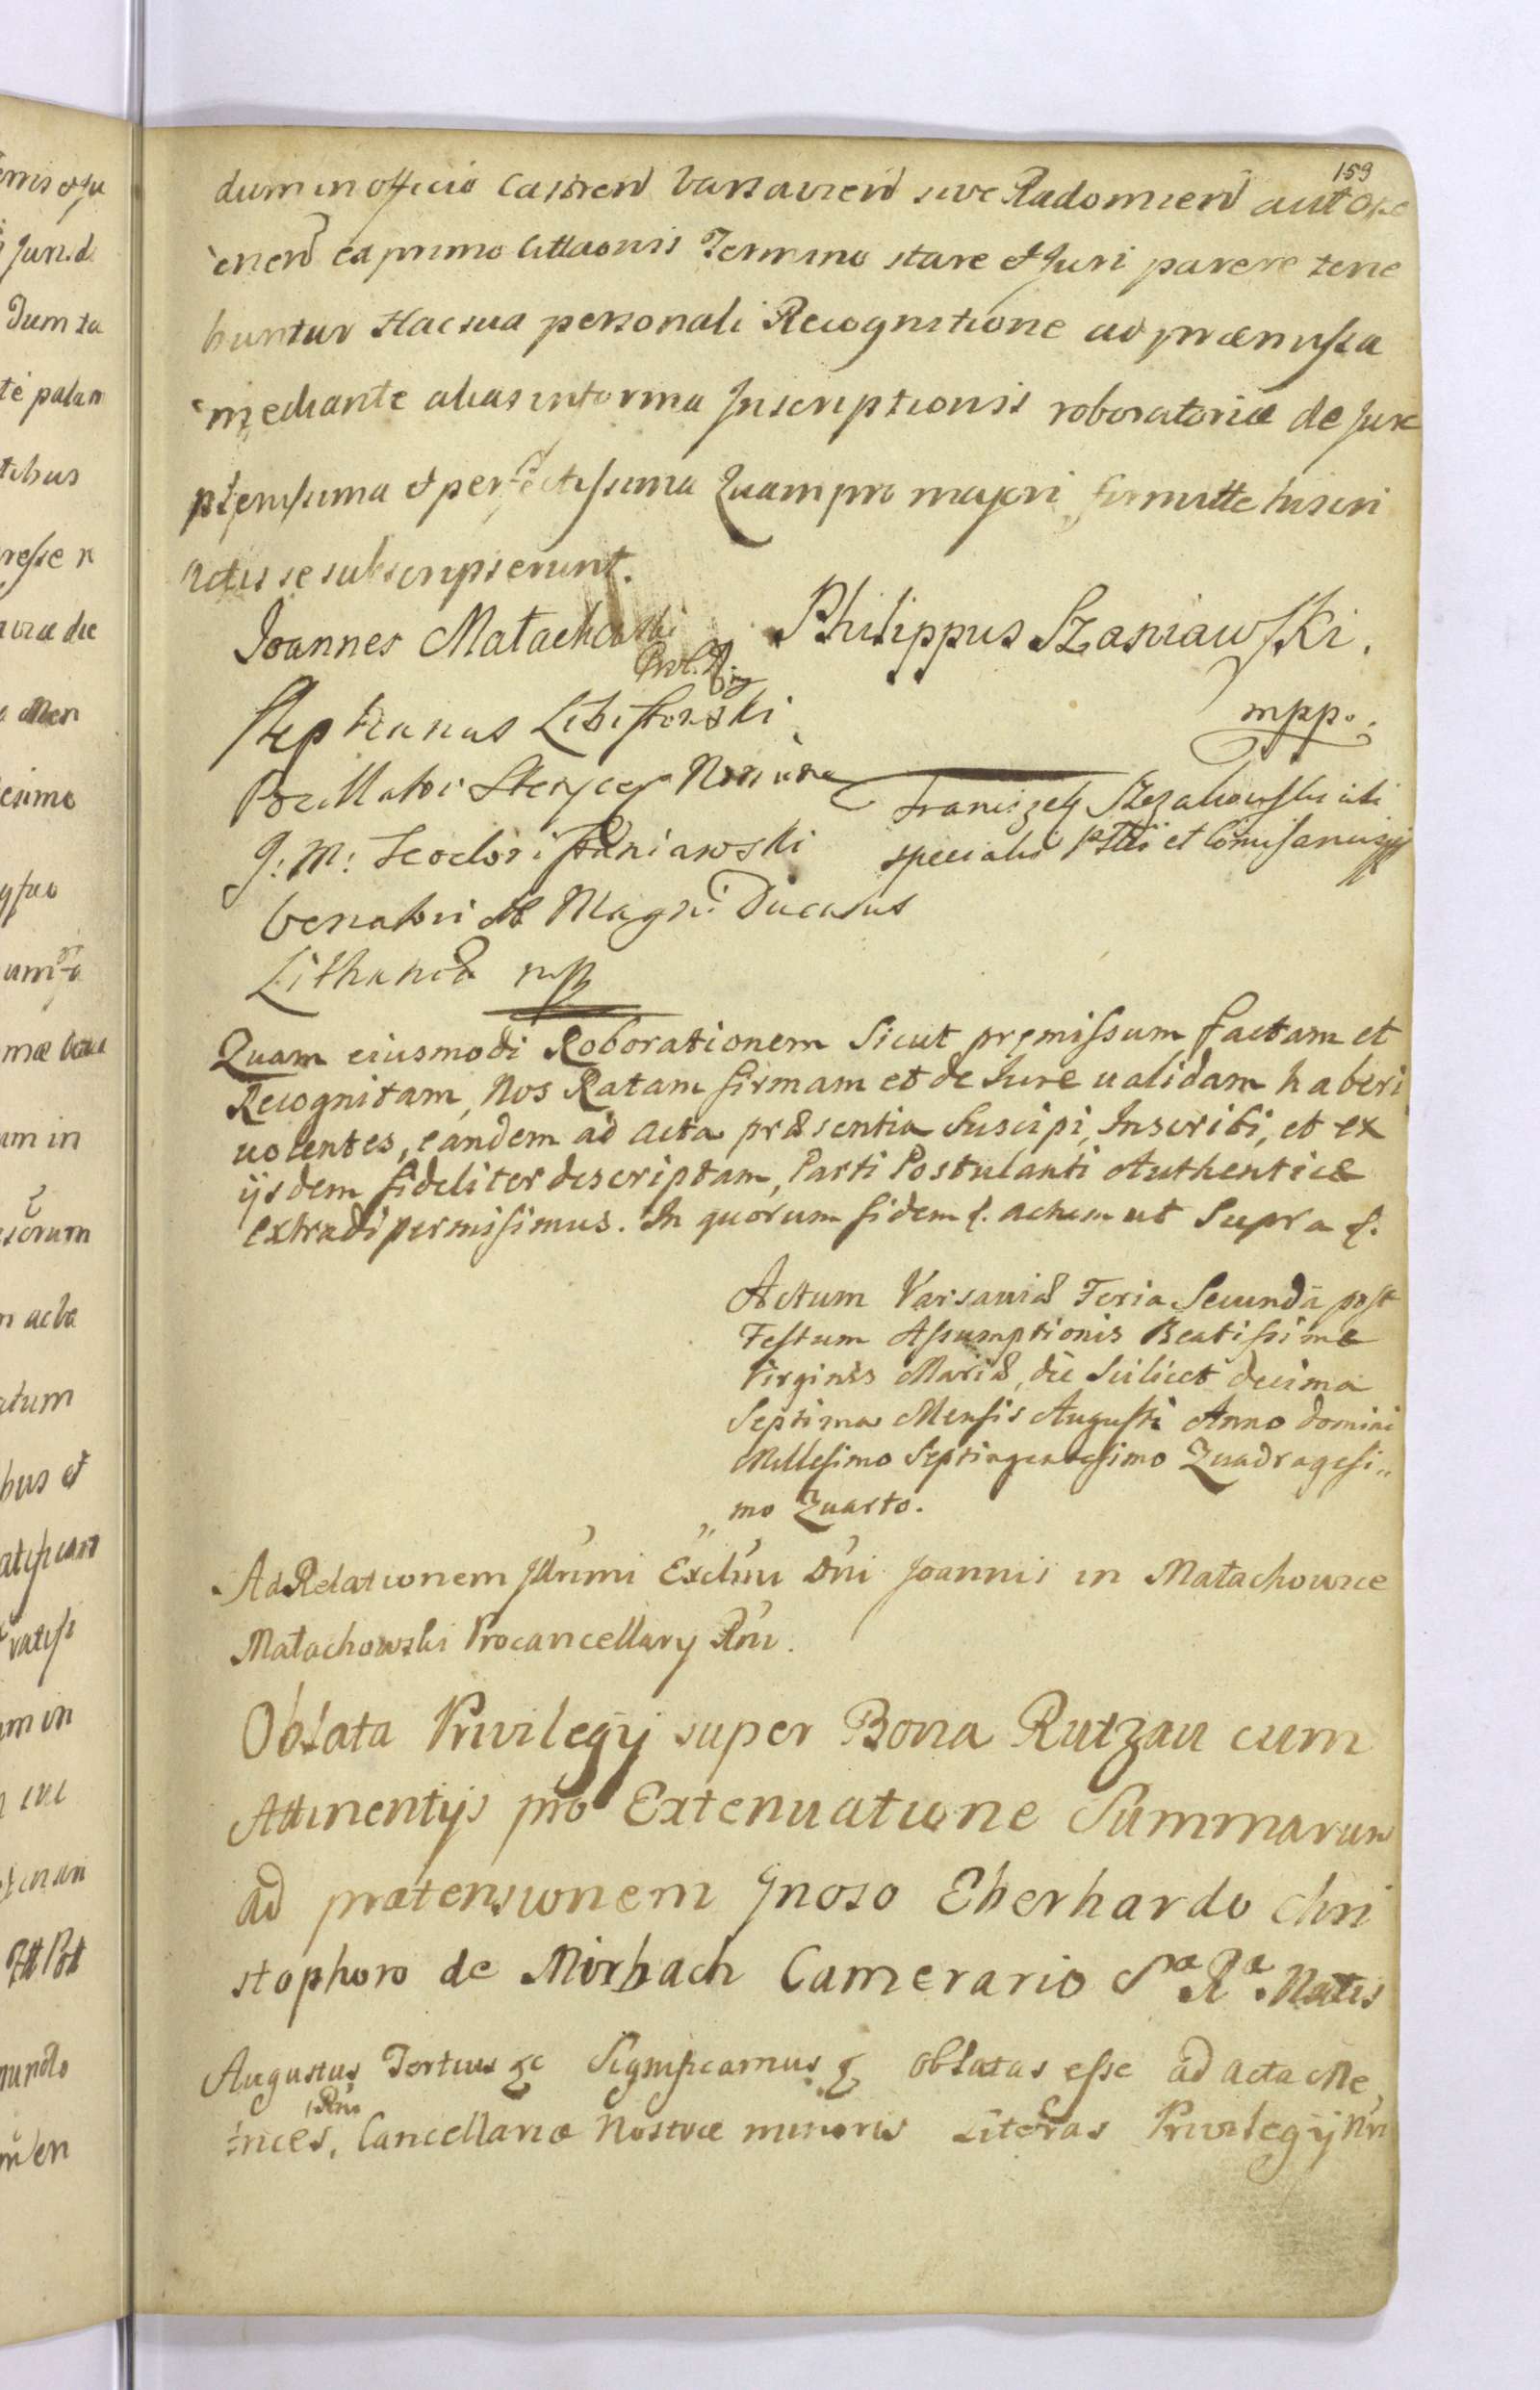 159
dum in officio Castren Varsavien sive Radomien aut Opo
cnen ea primo Cittaonis Termino stare et Juri parere tene
buntur Hac sua personali Recognitione ad præmissa
mediante alias in forma Inscriptionis roboratoriæ de Jure
plenissima et perfectissima Quam pro majori firmitte hisce
Actis se subscripserunt.
Joannes Małachowski
Philippus Szaniawski.
mpp.
Stephanus Libiszowski
Franciszek
J: M: Teodori Szaniawski
specialis et Comisarius
Venatori Magni Ducatus
Lithaniæ mpp
Quam eiusmodi Roborationem Sicut premissum factam et
Recognitam, Nos Ratam firmam et de Iure ualidam haberi
uolentes, eandem ad Acta præsentia Suscipi, Inscribi, et ex
ijsdem fideliter descriptam, Parti Postulanti Authenticæ
extradi permisimus. In quorum fidem &. Actum ut Supra &.
Actum Varsauiæ Feria Secunda post
Festum Assumptionis Beatissimæ
Virginis Mariæ, die Scilicet decima
Septima Mensis Augusti Anno Domini
Millesimo Septingentesimo Quadragesi„
„mo Quarto.
Ad Relationem Illrimi Exclmi Dni Joannis in Małachowice
Małachowski Procancellary Rni.
Oblata Privilegij super Bona Rutzau cum
Attinentijs pro Extenuatione Summarum
ad prætensionem Gnoso Eberhardo Chri
stophoro de Mirbach Camerario Sa. Ra. Mattis
Augustus Tertius &c Significamus & oblatas esse ad Acta Me„
trices, Rni Cancellariæ Nostræ minoris Literas Privilegij Nri